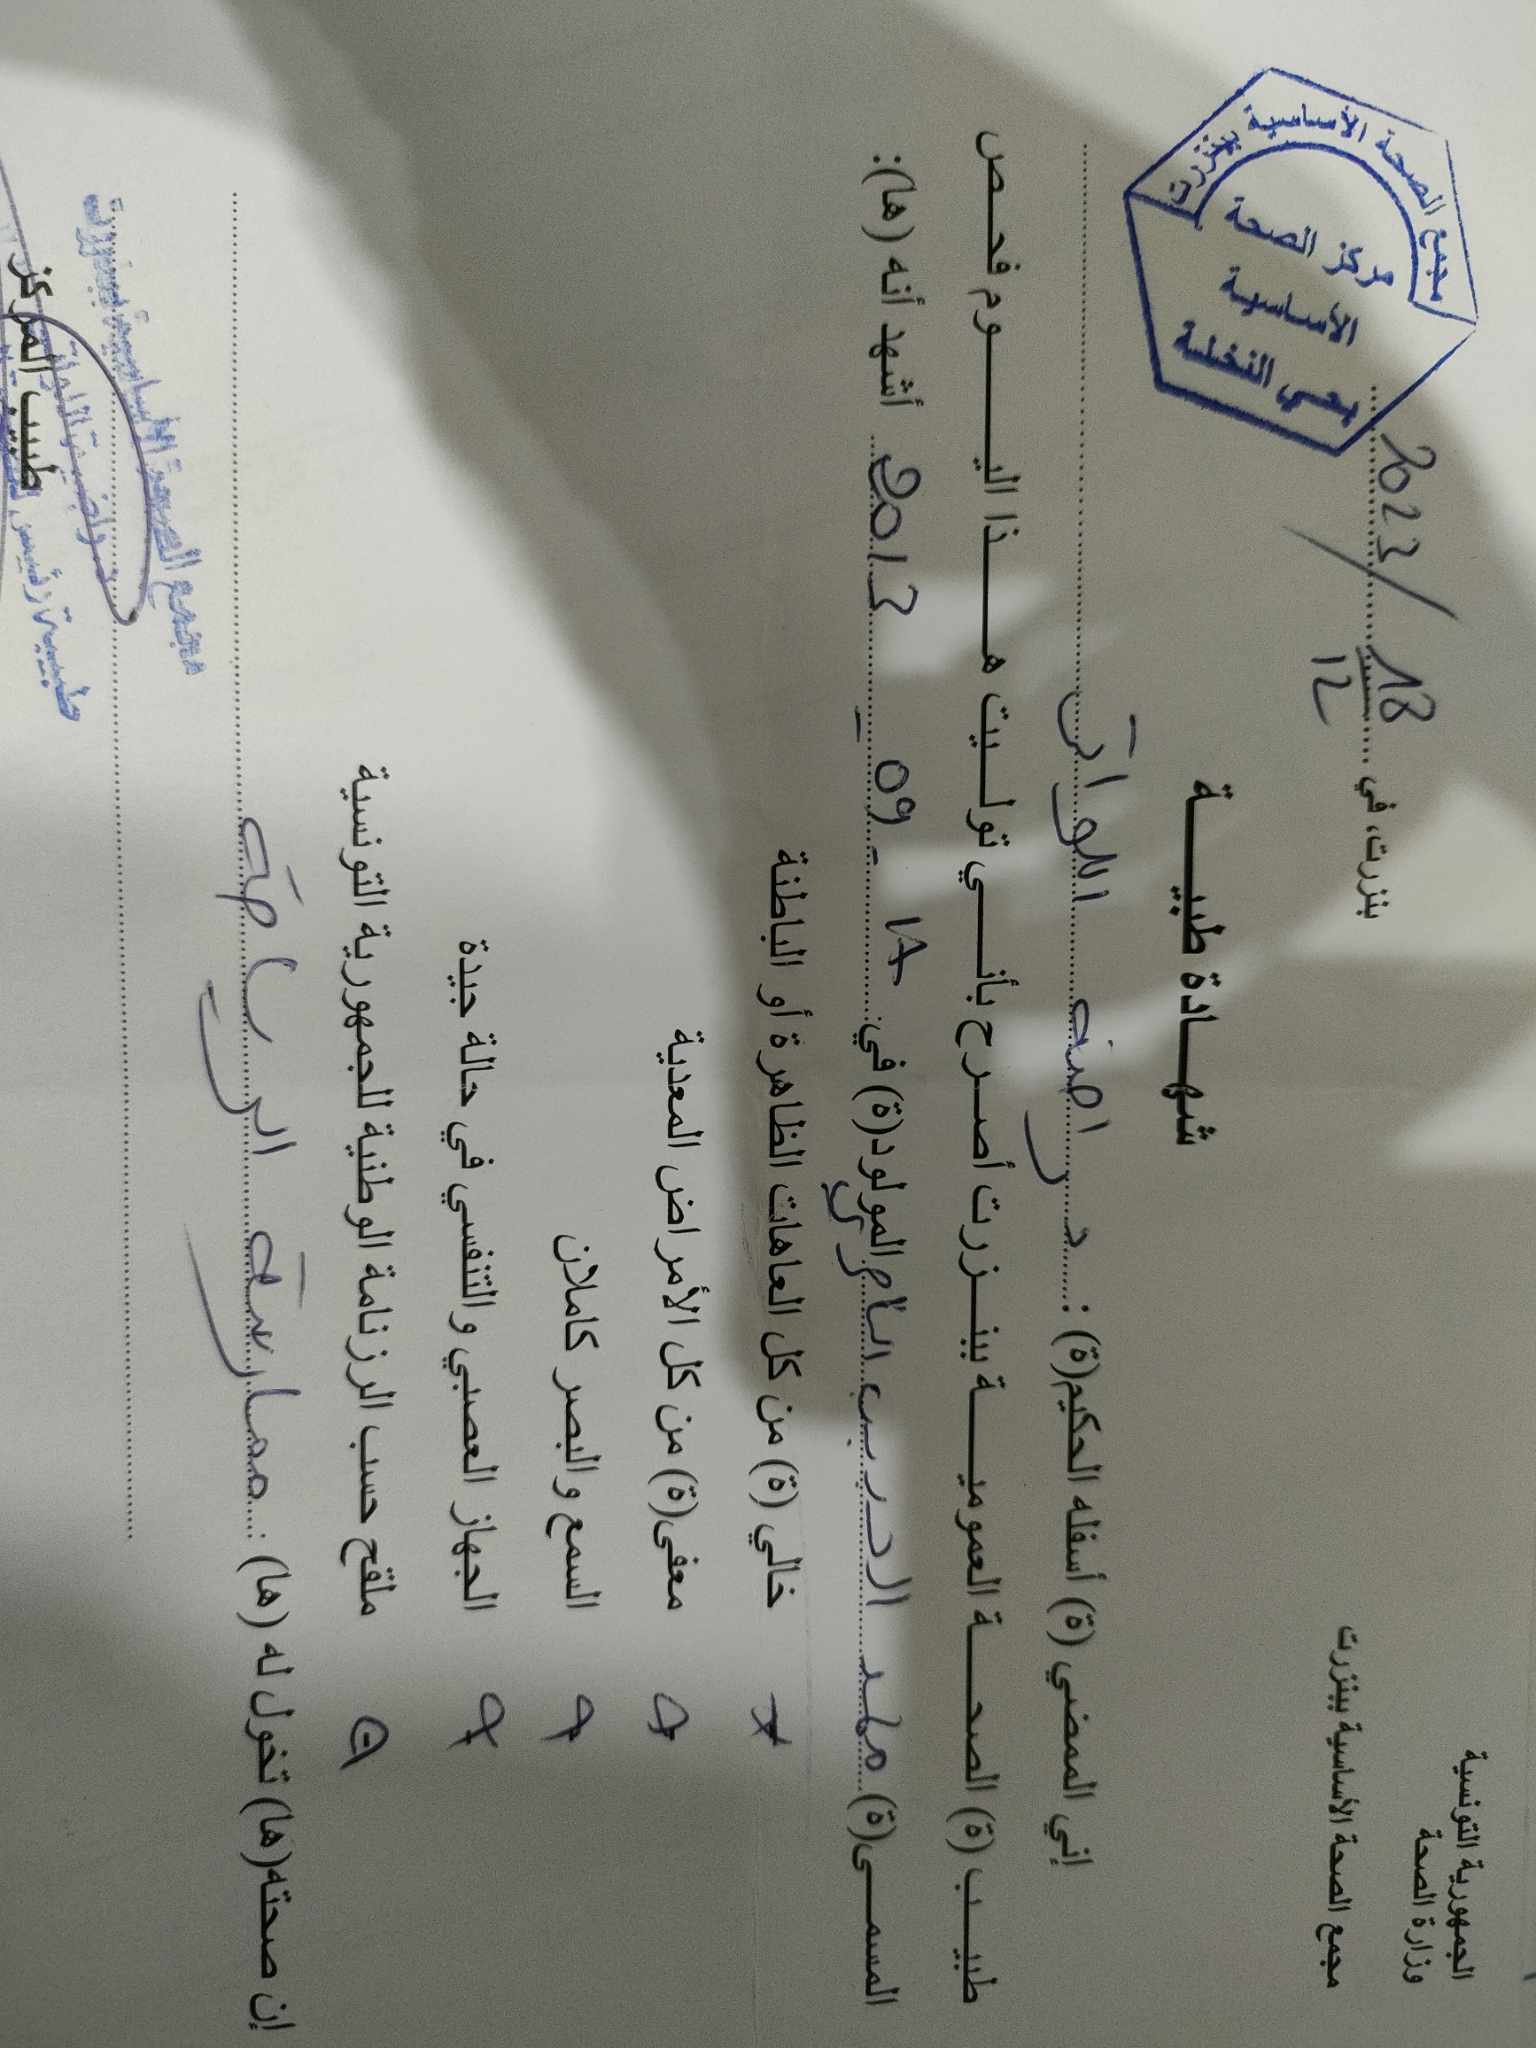 الجمهورية التونسية
وزارة الصحة
مجمع الصحة الأساسية ببنزرت
بنزرت، في 18/12/2023
مجمع الصحة الأساسية ببنزرت
مركز الصحة
الأساسية
بحي النخلة
شهــادة طبيــة
إني الممضي (ة) أسفله الحكيم(ة) : د. راضية اللواتي
طبيب (ة) الصحة العمومية ببنزرت أصرح بأني توليت هذا اليوم فحص
المسمى(ة) المولود(ة) في: 17 - 09 - 2013 أشهد أنه (ها):
+ خالي (ة) من كل العاهات الظاهرة أو الباطنة
+ معفى(ة) من كل الأمراض المعدية
+ السمع والبصر كاملان
+ الجهاز العصبي والتنفسي في حالة جيدة
ملقح حسب الرزنامة الوطنية للجمهورية التونسية
إن صحته(ها) تخول له (ها) : ممارسة الرياضة
مجمع الصحة الأساسية ببنزرت
طبيب المركز